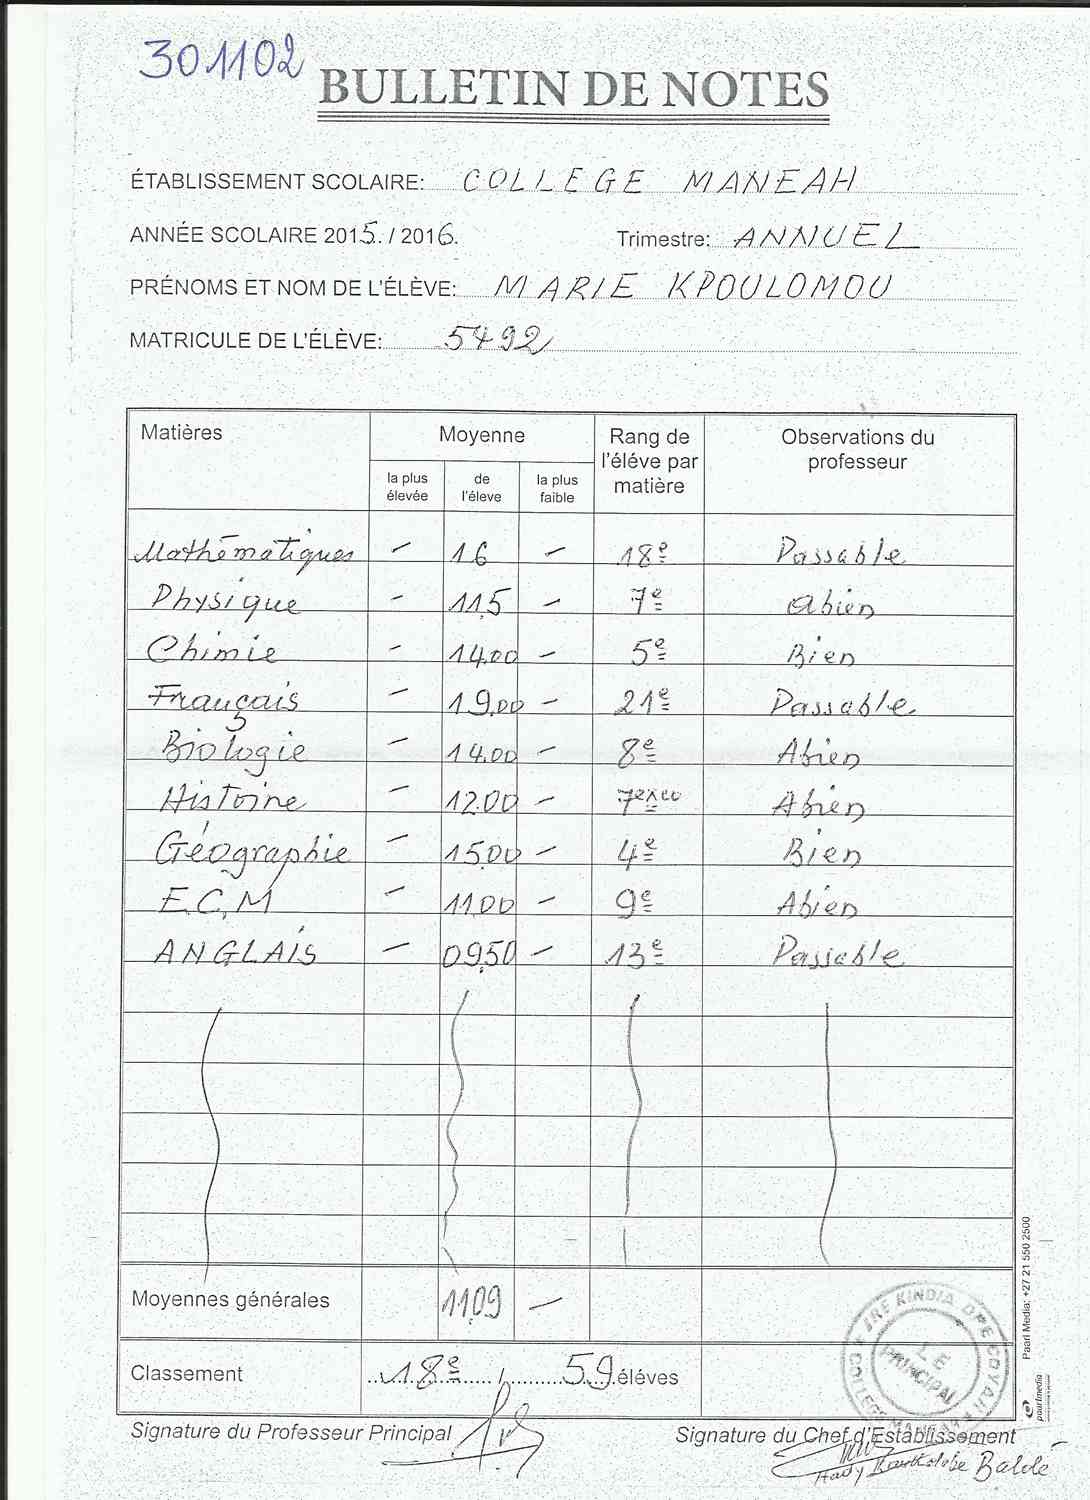 301102
BULLETIN DE NOTES
ÉTABLISSEMENT SCOLAIRE: COLLEGE MANEAH
ANNÉE SCOLAIRE 2015. / 2016. Trimestre: ANNUEL
PRÉNOMS ET NOM DE L'ÉLÈVE: MARIE KPOULOMOU
MATRICULE DE L'ÉLÈVE: 5492
Matières Moyenne Rang de l'éléve par matière Observations du professeur
la plus élevée de l'éleve la plus faible
Mathématiques - 16 - 18e Passable
Physique - 11,5 - 7e Abien
Chimie - 14.00 - 5e Bien
Français - 19.00 - 21e Passable
Biologie - 14.00 - 8e Abien
Histoire - 12.00 - 7e Abien
Géographie - 15.00 - 4e Bien
E.C.M - 11.00 - 9e Abien
ANGLAIS - 09,50 - 13e Passable
Moyennes générales 11,09 -
Classement 18e / 59 élèves
Signature du Professeur Principal Signature du Chef d'Établissement
Baldé
LE PRINCIPAL
DRE KINDIA DPE COYAH
COLLEGE MANEAH
Paarl Media: +27 21 550 2500
paarlmedia